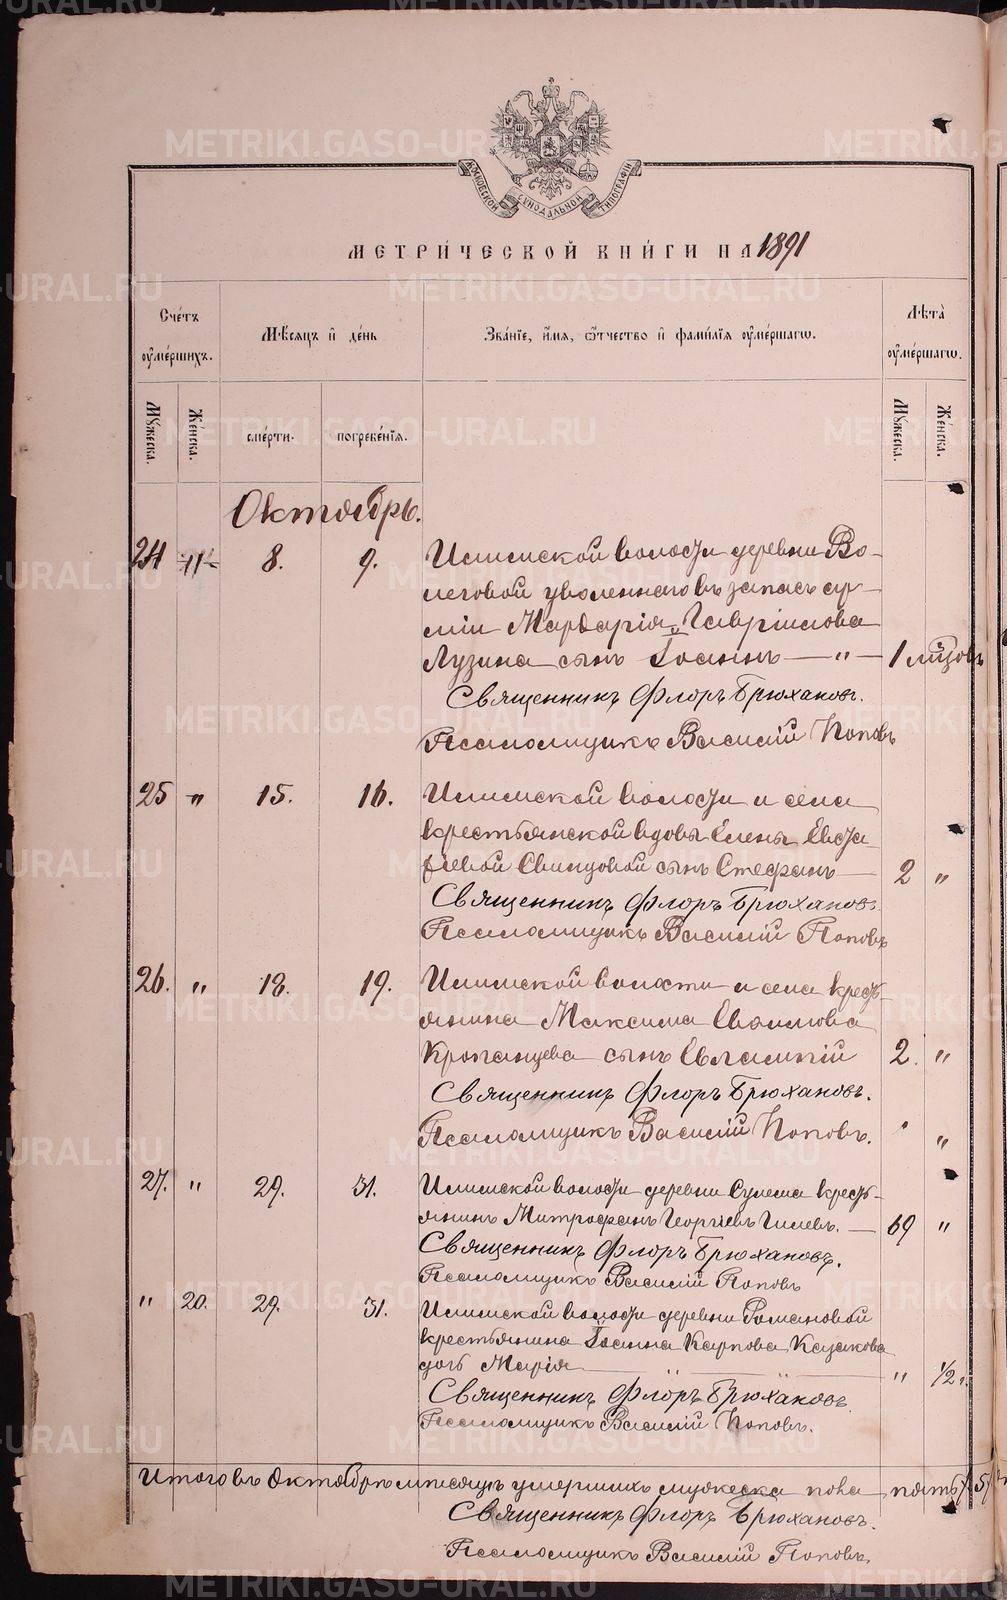 МОСКОВСКОЙ СѴНОДАЛЬНОЙ ТИПОГРАФІИ
МЕТРИ́ЧЕСКОЙ КНИ́ГИ НА 1891
Сче́тъ ᲂу҆ме́ршихъ. Мѣ́сяцъ и҆ де́нь Зва́нїе, и҆́мя, ѻ҆́тчество и҆ фами́лїя ᲂу҆ме́ршагѡ. Лѣта̀ ᲂу҆ме́ршагѡ.
Мꙋ́жеска. Же́нска. сме́рти. погребе́нїя. Мꙋ́жеска. Же́нска.
Октябрь.
24 8. 9. Илимской волости деревни Во-
леговой уволеннаго въ запасъ ар-
міи Мардарія Гавріилова
Лузина сынъ Іоаннъ — „ — 1
Священникъ Флоръ Брюхановъ.
Псаломщикъ Василій Поповъ
25 „ 15. 16. Илимской волости и села
крестьянской вдовы Елены Евста
фіевой Свинцовой сынъ Стефанъ — 2 „
Священникъ Флоръ Брюхановъ
Псаломщикъ Василій Поповъ
26. „ 18. 19. Илимской волости и села кресть-
янина Максима
Кропанцева сынъ Евлампій 2. „
Священникъ Флоръ Брюхановъ.
Псаломщикъ Василій Поповъ. „
27. „ 29. 31. Илимской волости деревни Сулема кресть-
янинъ Митрофанъ Георгіевъ Гилевъ. — 69 „
Священникъ Флоръ Брюхановъ.
Псаломщикъ Василій Поповъ
„ 20. 29. 31. Илимской волости деревни Романовой
крестьянина Іоанна Карпова Казакова
дочь Марія — „ — „ 1/2
Священникъ Флоръ Брюхановъ.
Псаломщикъ Василій Поповъ.
Итого въ Октябрѣ мѣсяцѣ умершихъ мужеска пола пять
Священникъ Флоръ Брюхановъ.
Псаломщикъ Василій Поповъ.
METRIKI.GASO-URAL.RU